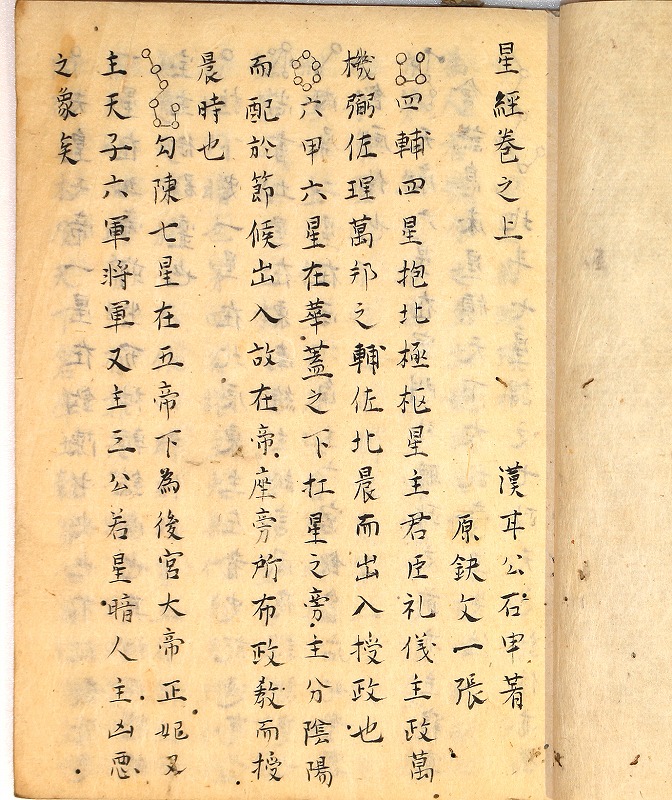 星經卷之上
漢甘公石申著
原鈌文一張
四輔四星抱北極枢星主君臣礼儀主政萬
機弼佐理萬邦之輔佐北晨而出入授政也
六甲六星在華蓋之下扛星之旁主分陰陽
而配於節候出入故在帝座旁所布政教而授
晨時也
勾陳七星在五帝下為後宮大帝正妃又
主天子六軍将軍又主三公若星暗人主凶悪
之象矣